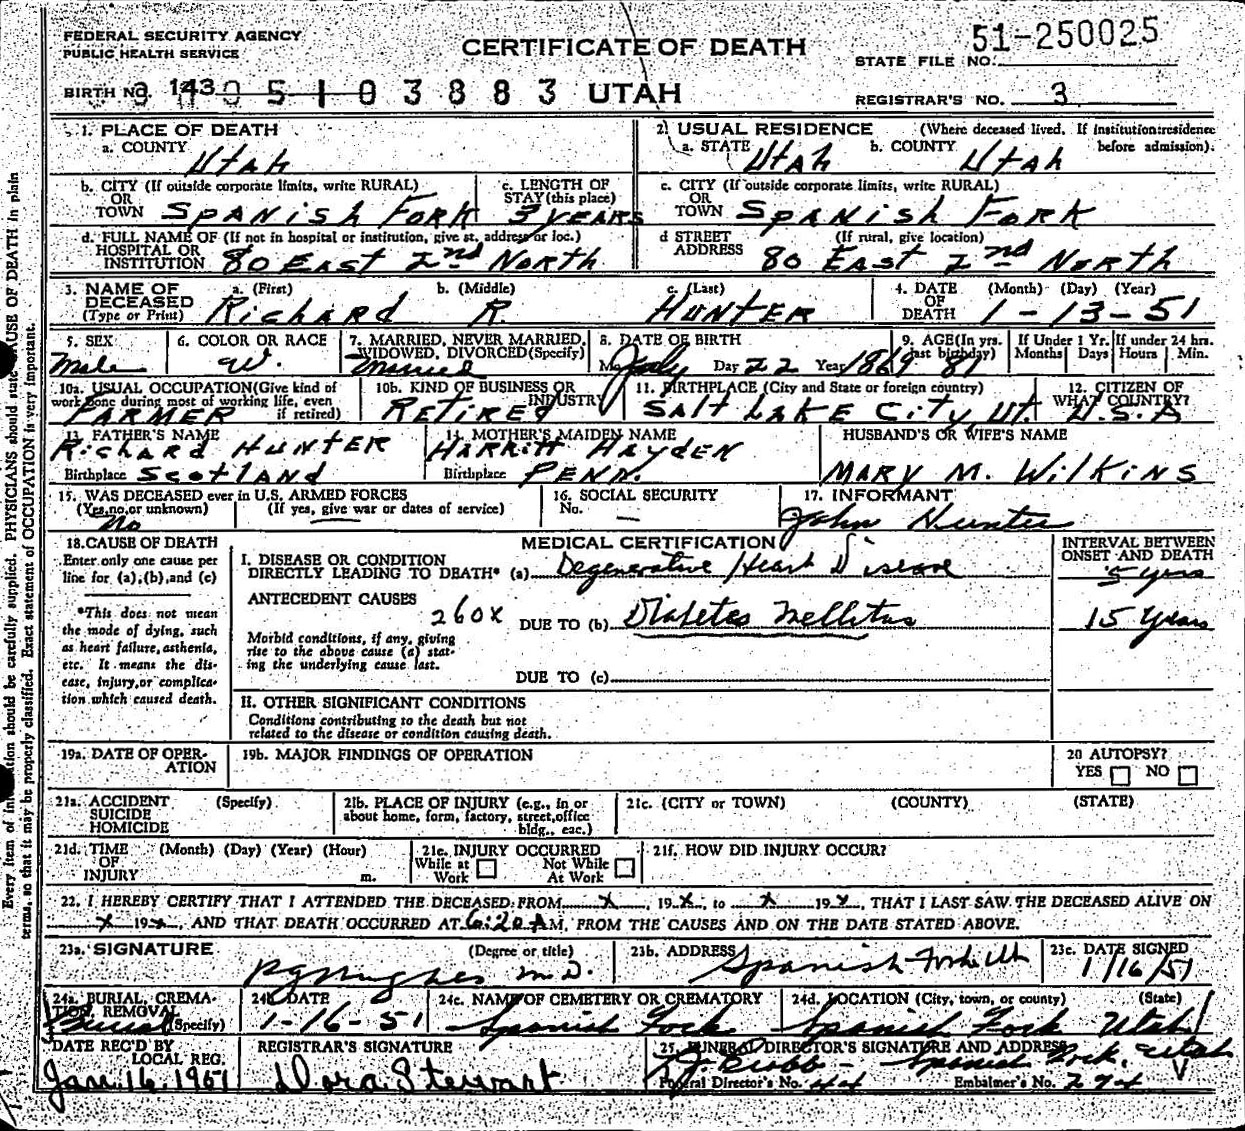 FEDERAL SECURITY AGENCY
PUBLIC HEALTH SERVICE
CERTIFICATE OF DEATH
51-250025
STATE FILE NO.
BIRTH NO. 143 05103883 UTAH
REGISTRAR'S NO. 3
1. PLACE OF DEATH
a. COUNTY
Utah
2. USUAL RESIDENCE (Where deceased lived. If institution:residence before admission).
a. STATE Utah b. COUNTY Utah
b. CITY (If outside corporate limits, write RURAL)
OR
TOWN Spanish Fork
c. LENGTH OF
STAY (this place)
3 years
c. CITY (If outside corporate limits, write RURAL)
OR
TOWN Spanish Fork
d. FULL NAME OF (If not in hospital or institution, give st. address or loc.)
HOSPITAL OR
INSTITUTION 80 East 2nd North
d STREET (If rural, give location)
ADDRESS 80 East 2nd North
3. NAME OF
DECEASED
(Type or Print)
a. (First) b. (Middle) c. (Last)
Richard R. Hunter
4. DATE (Month) (Day) (Year)
OF
DEATH 1-13-51
5. SEX
Male
6. COLOR OR RACE
W.
7. MARRIED, NEVER MARRIED,
WIDOWED, DIVORCED (Specify)
Married
8. DATE OF BIRTH
Mo. July Day 22 Year 1869
9. AGE (In yrs.
last birthday)
81
If Under 1 Yr.
Months Days
If under 24 hrs.
Hours Min.
10a. USUAL OCCUPATION (Give kind of
work done during most of working life, even
if retired)
Farmer
10b. KIND OF BUSINESS OR
INDUSTRY
Retired
11. BIRTHPLACE (City and State or foreign country)
Salt Lake City, Ut.
12. CITIZEN OF
WHAT COUNTRY?
U.S.A
13. FATHER'S NAME
Richard Hunter
Birthplace Scotland
14. MOTHER'S MAIDEN NAME
Harritt Hayden
Birthplace Penn.
HUSBAND'S OR WIFE'S NAME
Mary M. Wilkins
15. WAS DECEASED ever in U.S. ARMED FORCES
(Yes, no, or unknown) (If yes, give war or dates of service)
No
16. SOCIAL SECURITY
No. —
17. INFORMANT
John Hunter
18. CAUSE OF DEATH
Enter only one cause per
line for (a), (b), and (c)
*This does not mean
the mode of dying, such
as heart failure, asthenia,
etc. It means the dis-
ease, injury, or complica-
tion which caused death.
MEDICAL CERTIFICATION
I. DISEASE OR CONDITION
DIRECTLY LEADING TO DEATH* (a) Degenerative Heart Disease
ANTECEDENT CAUSES
260X
DUE TO (b) Diabetes Mellitus
Morbid conditions, if any, giving
rise to the above cause (a) stat-
ing the underlying cause last.
DUE TO (c)
II. OTHER SIGNIFICANT CONDITIONS
Conditions contributing to the death but not
related to the disease or condition causing death.
INTERVAL BETWEEN
ONSET AND DEATH
5 yrs
15 years
19a. DATE OF OPER-
ATION
19b. MAJOR FINDINGS OF OPERATION
20 AUTOPSY?
YES NO
21a. ACCIDENT (Specify)
SUICIDE
HOMICIDE
21b. PLACE OF INJURY (e.g., in or
about home, form, factory, street, office
bldg., eac.)
21c. (CITY or TOWN) (COUNTY) (STATE)
21d. TIME (Month) (Day) (Year) (Hour)
OF
INJURY m.
21e. INJURY OCCURRED
While at Work Not While At Work
21f. HOW DID INJURY OCCUR?
22. I HEREBY CERTIFY THAT I ATTENDED THE DECEASED FROM x, 19x, to x 19x, THAT I LAST SAW THE DECEASED ALIVE ON
x 19x, AND THAT DEATH OCCURRED AT 6:20 A M, FROM THE CAUSES AND ON THE DATE STATED ABOVE.
23a. SIGNATURE (Degree or title)
Hughes M.D.
23b. ADDRESS
Spanish Fork Utah
23c. DATE SIGNED
1/16/51
24a. BURIAL, CREMA-
TION, REMOVAL
(Specify)
Burial
24b. DATE
1-16-51
24c. NAME OF CEMETERY OR CREMATORY
Spanish Fork
24d. LOCATION (City, town, or county) (State)
Spanish Fork Utah
DATE REC'D BY
LOCAL REG.
Jan. 16, 1951
REGISTRAR'S SIGNATURE
Dora Stewart
25. FUNERAL DIRECTOR'S SIGNATURE AND ADDRESS
Spanish Fork, Utah
Funeral Director's No. 44 Embalmer's No. 274
Every item of information should be carefully supplied. PHYSICIANS should state CAUSE OF DEATH in plain
terms, so that it may be properly classified. Exact statement of OCCUPATION is very important.